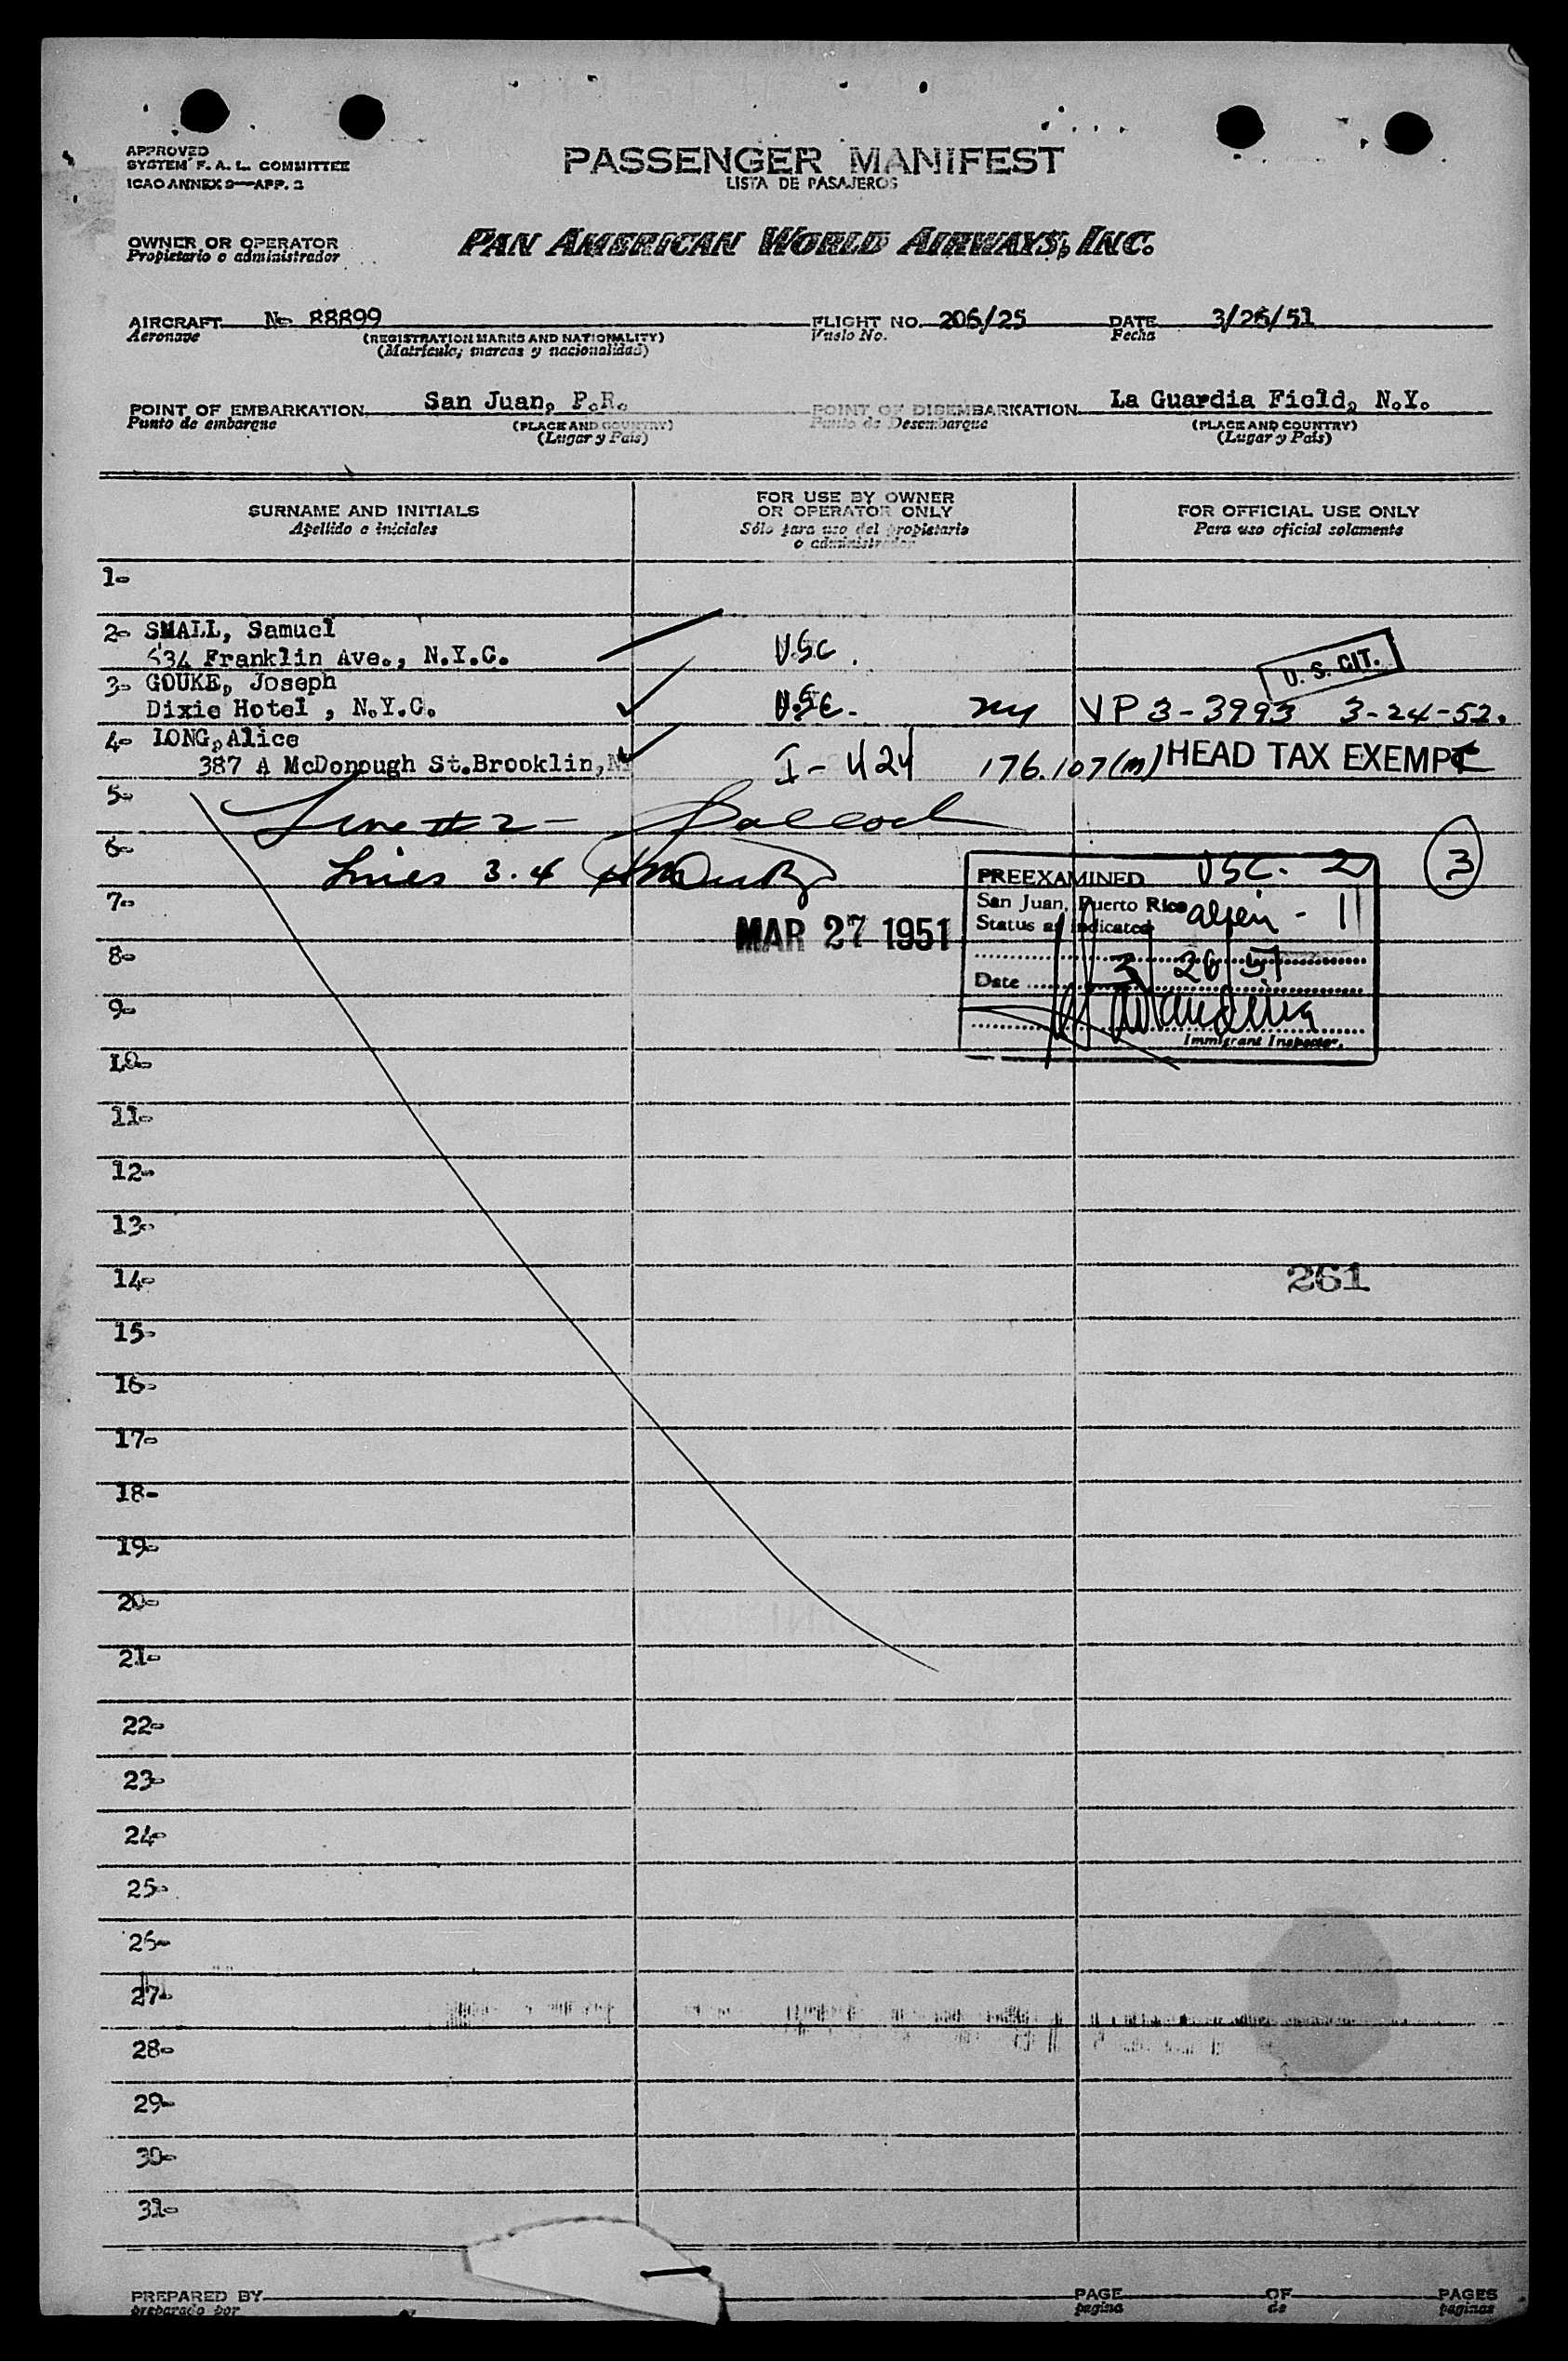 APPROVED
SYSTEM F. A. L. COMMITTEE
ICAO ANNEX 9—APP. 2
PASSENGER MANIFEST
LISTA DE PASAJEROS
OWNER OR OPERATOR
Propietario o administrador
PAN AMERICAN WORLD AIRWAYS, INC.
AIRCRAFT N- 88899 FLIGHT NO. 206/25 DATE 3/26/51
Aeronave (REGISTRATION MARKS AND NATIONALITY) Vuelo No. Fecha
(Matrícula, marcas y nacionalidad)
POINT OF EMBARKATION San Juan, P.R. POINT OF DISEMBARKATION La Guardia Field, N.Y.
Punto de embarque (PLACE AND COUNTRY) Punto de Desembarque (PLACE AND COUNTRY)
(Lugar y País) (Lugar y País)
SURNAME AND INITIALS FOR USE BY OWNER OR OPERATOR ONLY FOR OFFICIAL USE ONLY
Apellido e iniciales Sólo para uso del propietario o administrador Para uso oficial solamente
1-
2- SMALL, Samuel
534 Franklin Ave., N.Y.C. USC. U. S. CIT.
3- GOUKE, Joseph
Dixie Hotel , N.Y.C. USC- ny VP 3-3993 3-24-52.
4- LONG, Alice
387 A McDonough St.Brooklin, I-424 176.107(m) HEAD TAX EXEMPT
5- Line # 2-
6- Lines 3.4
PREEXAMINED USC. 2 3
7- San Juan, Puerto Rico alien - 1
MAR 27 1951 Status as indicated
8-
Date 3 26 51
9-
Immigrant Inspector.
10-
11-
12-
13-
14- 261
15-
16-
17-
18-
19-
20-
21-
22-
23-
24-
25-
26-
27-
28-
29-
30-
31-
PREPARED BY PAGE OF PAGES
preparado por pagina de paginas